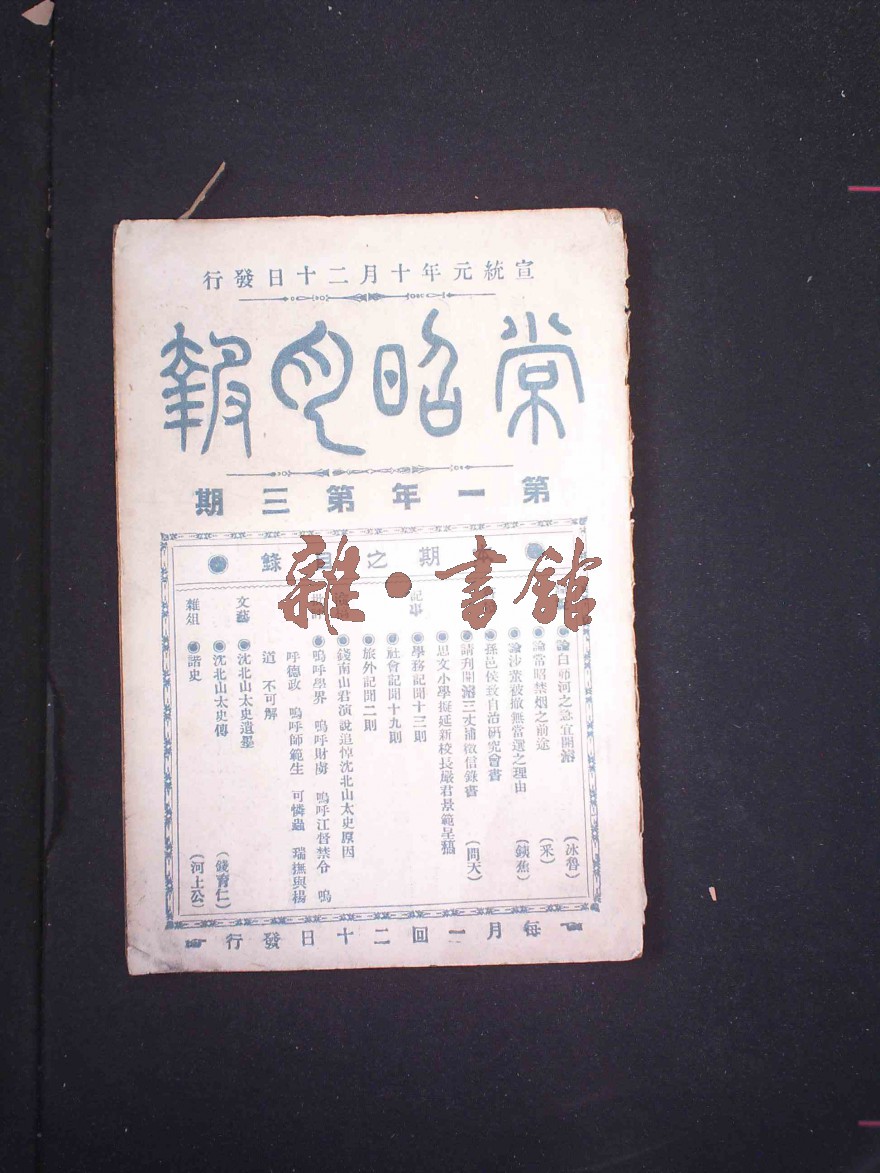 宣統元年十月二十日發行
常昭月報
第一年第三期
期之目錄
論白茆河之急宜開濬 (冰魯)
論常昭禁烟之前途 (釆)
論沙董被撤無當選之理由 (鐵蕉)
孫邑侯致自治研究會書
請刋開濬三丈浦徵信錄書 (問天)
思文小學擬延新校長嚴君景範呈稿
記事
學務記聞十三則
社會記聞十九則
旅外記聞二則
錢南山君演說追悼沈北山太史原因
嗚呼學界 嗚呼財虜 嗚呼江督禁令 嗚
呼德政 嗚呼師範生 可憐蟲 瑞撫與楊
道 不可解
文藝 沈北山太史遺墨
沈北山太史傳 (錢育仁)
雜俎 諧史 (河上公)
每月一回二十日發行
雜·書館